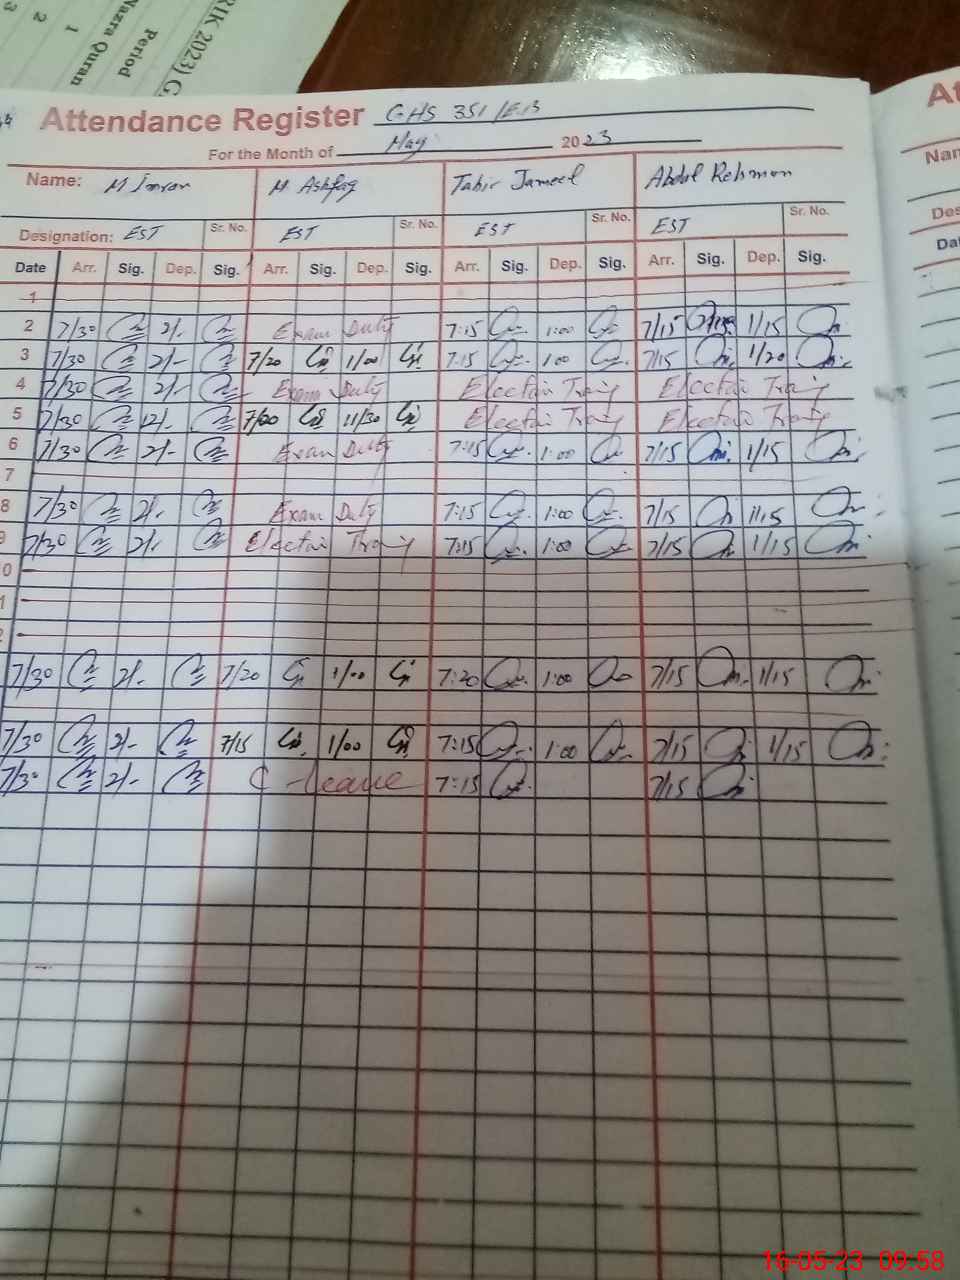 RIK 2023) G
Period
Nazra Quran
1
2
3
Attendance Register GHS 351/E.B
For the Month of May 2023
Name: M Imran M. Ashfaq Tahir Jameel Abdul Rehman
Designation: EST Sr. No. EST Sr. No. EST Sr. No. EST Sr. No.
Date Arr. Sig. Dep. Sig. Arr. Sig. Dep. Sig. Arr. Sig. Dep. Sig. Arr. Sig. Dep. Sig.
1
2 7/30 2/- Exam Duty 7:15 1:00 7/15 1/15
3 7/30 2/- 7/20 1/00 7:15 1:00 7/15 1/20
4 7/30 2/- Exam Duty
5 7/30 12/- 7/20 11/30
6 7/30 2/- Exam Duty 7:15 1:00 7/15 1/15
7
8 7/30 2/- Exam Duty 7:15 1:00 7/15 1/15
9 7/30 2/- 7:15 1:00 7/15 1/15
0
1
2
7/30 2/- 7/20 1/00 7:20 1:00 7/15 1/15
7/30 2/- 7/15 1/00 7:15 1:00 7/15 1/15
7/30 2/- C-leave 7:15 7/15
At
Nam
Des
Da
16-05-23 09:58